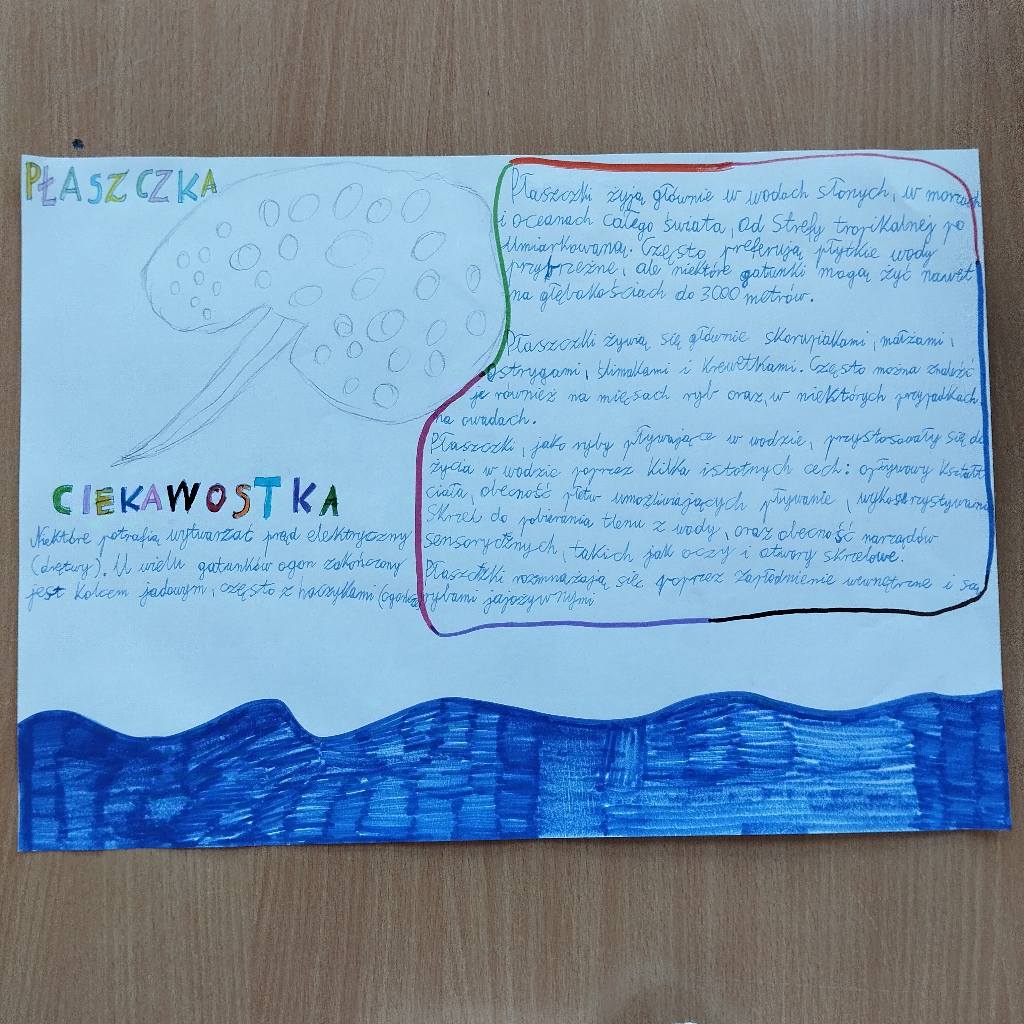 PŁASZCZKA
Płaszczki żyją głównie w wodach słonych, w morzach
i oceanach całego świata, od Strefy tropikalnej po
Umiarkowaną. Często preferują płytkie wody
przybrzeżne, ale niektóre gatunki mogą żyć nawet
na głębokościach do 3000 metrów.
Płaszczki żywią się głównie skorupiakami, małżami,
ostrygami, ślimakami i krewetkami. Często można znaleźć
je również na mięsach ryb oraz, w niektórych przypadkach
na owadach.
Płaszczki, jako ryby pływające w wodzie, przystosowały się do
życia w wodzie poprzez kilka istotnych cech: opływowy kształt
ciała, obecność płetw umożliwiających pływanie, wykorzystywanie
Skrzel do pobierania tlenu z wody, oraz obecność narządów
sensorycznych, takich jak oczy i otwory skrzelowe.
Płaszczki rozmnażają się poprzez zapłodnienie wewnętrzne i są
rybami jajożywnymi
CIEKAWOSTKA
Niektóre potrafią wytwarzać prąd elektryczny
(drętwy). U wielu gatunków ogon zakończony
jest kolcem jadowym, często z haczykami